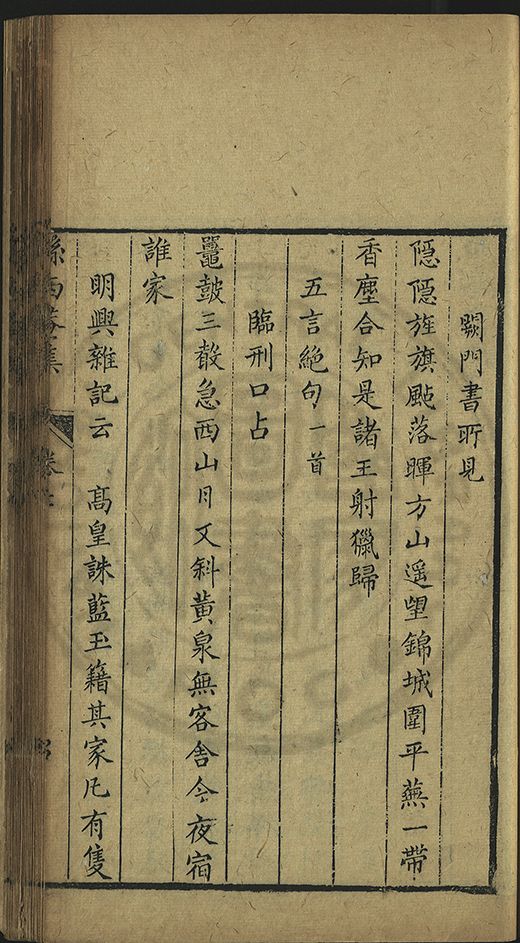 闕門書所見
隠隠旌旗颭落暉方山遥望錦城圍平蕪一帶
香塵合知是諸王射獵歸
五言絶句一首
臨刑口占
鼉皷三敲急西山日又斜黃泉無客舍今夜宿
誰家
明興雜記云 髙皇誅藍玉籍其家凡有隻
孫西菴集 卷